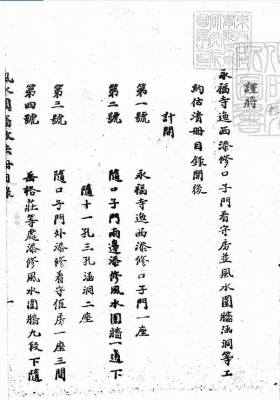 謹將
永福寺迤西添修口子門看守房並風水圍牆涵洞等工
約估清冊目錄開後
計開
第一號　永福寺迤西添修口子門一座
第二號　隨口子門兩邊添修風水圍牆一道下
隨十一孔三孔涵洞二座
第三號　隨口子門外添修看守值房一座三間
第四號　岳格莊等處添修風水圍牆九段下隨